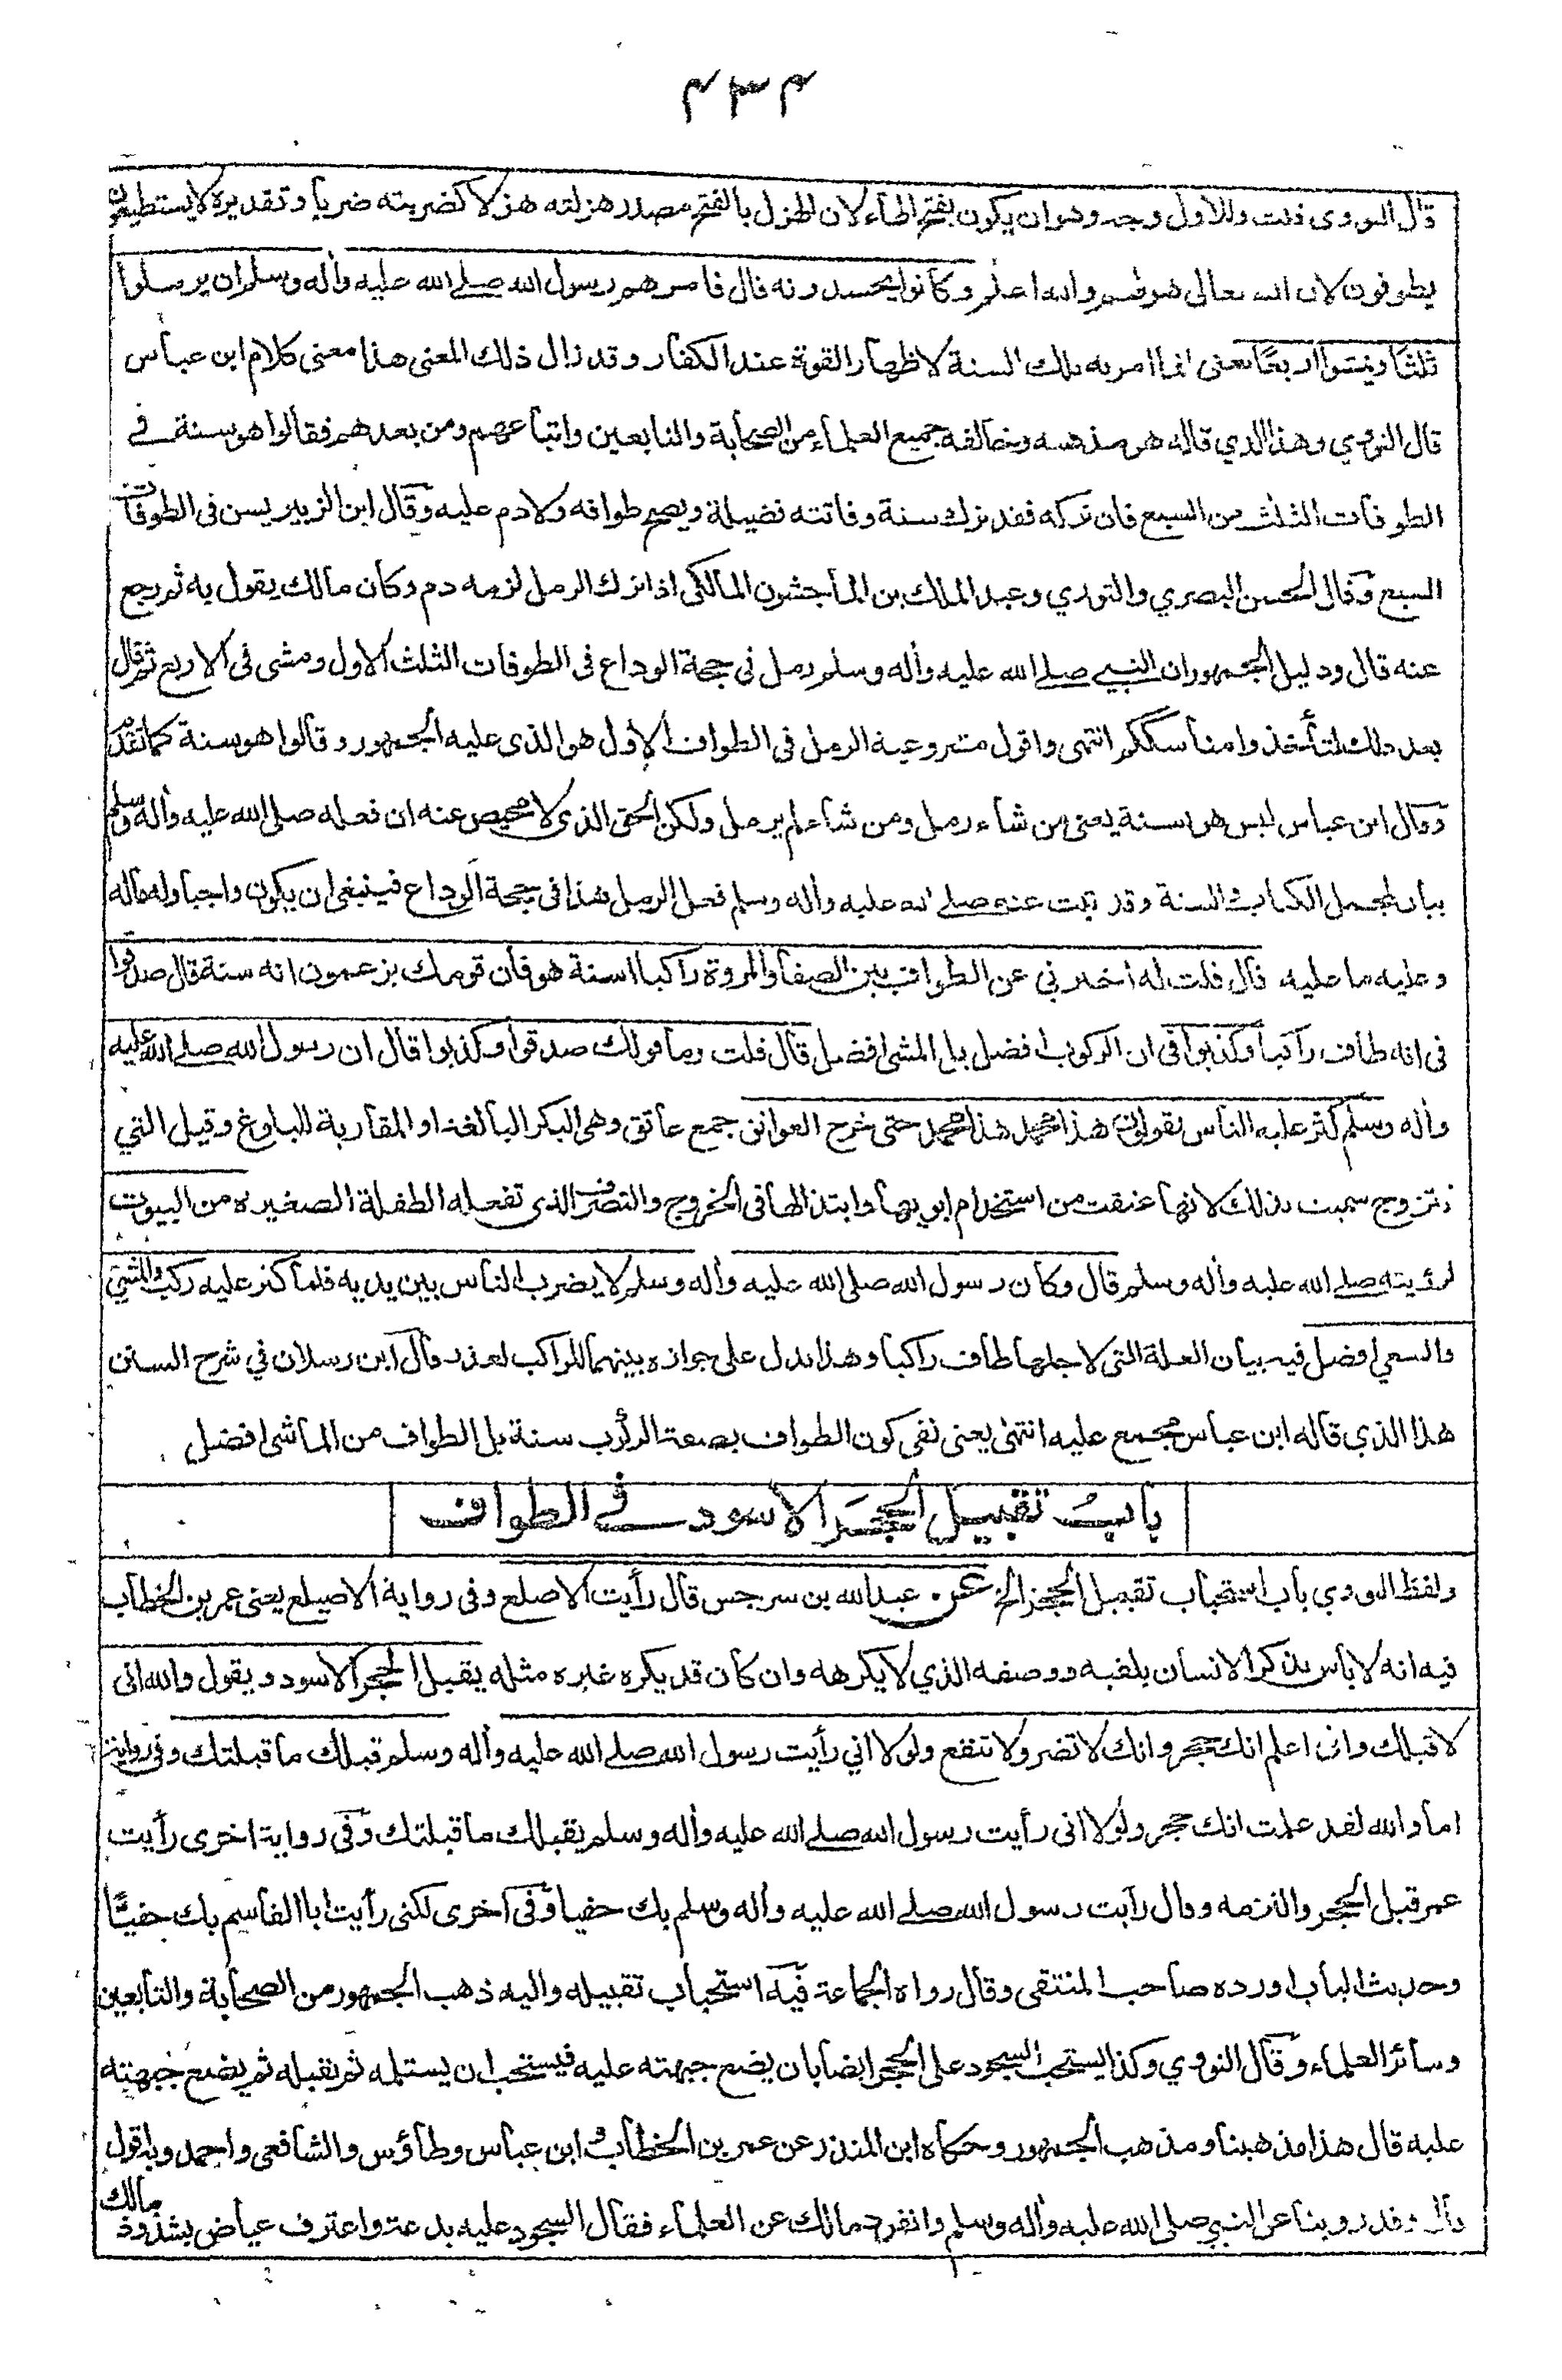 ٤٣٤
قال النووى قلت وللاول وجه وهو ان يكون بفتح الهاء لان الهزل بالفتح مصدر هزلته هزلا كضربته ضربا وتقديره لا يستطيعون
يطوفون لان الله تعالى هزلهم والله اعلم وكانوا يحسدونه قال فامرهم رسول الله صلے الله عليه وأله وسلم ان يرملوا
ثلثا ويمشوا اربعا يعنى انما امر به تلك السنة لاظهار القوة عند الكفار وقد زال ذلك المعنى هذا معنى كلام ابن عباس
قال النووي وهذا الذي قاله هو مذهبه وخالفه جميع العلماء من الصحابة والتابعين واتباعهم ومن بعدهم فقالوا هو سنة فے
الطوفات الثلث من السبع فان تركه فقد ترك سنة وفاتته فضيلة ويصح طوافه ولا دم عليه وقال ابن الزبير يسن فى الطوفات
السبع وقال الحسن البصري والثوري وعبد الملك بن الماجشون المالكى اذا ترك الرمل لزمه دم وكان مالك يقول به ثم رجع
عنه قال ودليل الجمهور ان النبے صلے الله عليه وأله وسلم رمل فى حجة الوداع فى الطوفات الثلث الاول ومشى فى الاربع ثم قال
بعد ذلك لتأخذوا مناسككم انتهى واقول مشروعية الرمل فى الطواف الاول هو الذى عليه الجمهور وقالوا هو سنة كما تقدم
وقال ابن عباس ليس هو سنة يعنى من شاء رمل ومن شاء لم يرمل ولكن الحق الذى لا محيص عنه ان فعله صلى الله عليه وأله وسلم
بيان لمجمل الكتاب والسنة وقد ثبت عنه صلے الله عليه وأله وسلم فعل الرمل هذا فى حجة الوداع فينبغى ان يكون واجبا وله ماله
وعليه ما عليه قال قلت له اخبرني عن الطواف بين الصفا والمروة راكبا اسنة هو فان قومك يزعمون انه سنة قال صدقوا
فى انه طاف راكبا وكذبوا فى ان الركوب افضل بل المشى افضل قال قلت وما قولك صدقوا وكذبوا قال ان رسول الله صلے الله عليه
وأله وسلم كثر عليه الناس يقولون هذا محمد هذا محمد حتى خرج العواتق جمع عاتق وهى البكر البالغة او المقاربة للبلوغ وقيل التي
تتزوج سميت بذلك لانها عتقت من استخدام ابويها وابتذالها فى الخروج والتصرف الذى تفعله الطفلة الصغيرة من البيوت
لرؤيته صلے الله عليه وأله وسلم قال وكان رسول الله صلى الله عليه وأله وسلم لا يضرب الناس بين يديه فلما كثر عليه ركب والمشى
والسعي افضل فيه بيان العلة التى لاجلها طاف راكبا وهذا يدل على جوازه بينهما للراكب لعذر وقال ابن رسلان في شرح السنن
هذا الذي قاله ابن عباس مجمع عليه انتهى يعنى نفى كون الطواف بصفة الركوب سنة بل الطواف من الماشى افضل
باب تقبيل الحجر الاسود فے الطواف
ولفظ النووي باب استحباب تقبيل الحجر الخ عن عبد الله بن سرجس قال رأيت الاصلع وفى رواية الاصيلع يعنى عمر بن الخطاب
فيه انه لا بأس بذكر الانسان بلقبه ووصفه الذي لا يكرهه وان كان قد يكره غيره مثله يقبل الحجر الاسود ويقول والله انى
لاقبلك وانى اعلم انك حجر وانك لا تضر ولا تنفع ولولا اني رأيت رسول الله صلے الله عليه وأله وسلم قبلك ما قبلتك وفى رواية
اما والله لقد علمت انك حجر ولولا انى رأيت رسول الله صلے الله عليه وأله وسلم يقبلك ما قبلتك وفى رواية اخرى رأيت
عمر قبل الحجر والتزمه وقال رأيت رسول الله صلے الله عليه وأله وسلم بك حفيا وفى اخرى لكنى رأيت ابا القاسم بك حفيًّا
وحديث الباب اورده صاحب المنتقى وقال رواه الجماعة فيه استحباب تقبيله واليه ذهب الجمهور من الصحابة والتابعين
وسائر العلماء وقال النووي وكذا يستحب السجود على الحجر ايضا بان يضع جبهته عليه فيستحب ان يستلمه ثم يقبله ثم يضع جبهته
عليه قال هذا مذهبنا ومذهب الجمهور وحكاه ابن المنذر عن عمر بن الخطاب وابن عباس وطاؤس والشافعى واحمد وبه اقول
قال وقد روينا عن النبي صلى الله عليه وأله وسلم وانفرد مالك عن العلماء فقال السجود عليه بدعة واعترف عياض بشذوذ مالك